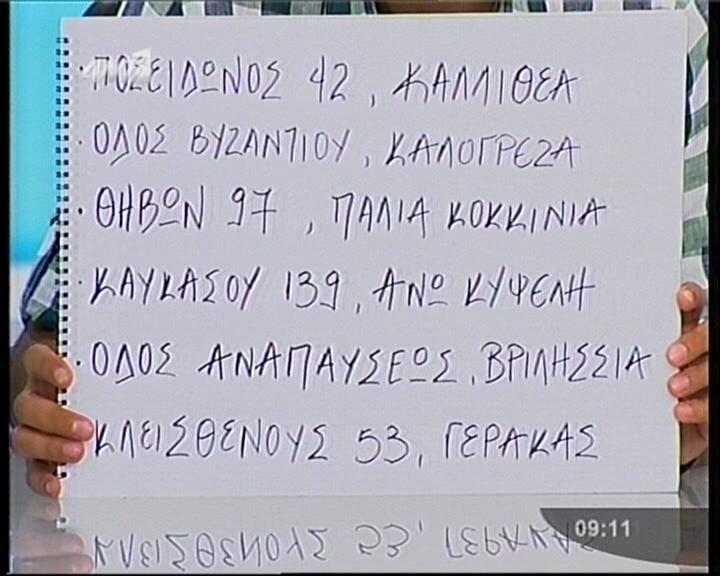 · ΠΟΣΕΙΔΩΝΟΣ 42, ΚΑΛΛΙΘΕΑ
· ΟΔΟΣ ΒΥΖΑΝΤΙΟΥ, ΚΑΛΟΓΡΕΖΑ
· ΘΗΒΩΝ 97, ΠΑΛΙΑ ΚΟΚΚΙΝΙΑ
· ΚΑΥΚΑΣΟΥ 139, ΑΝΩ ΚΥΨΕΛΗ
· ΟΔΟΣ ΑΝΑΠΑΥΣΕΩΣ, ΒΡΙΛΗΣΣΙΑ
ΚΛΕΙΣΘΕΝΟΥΣ 53, ΓΕΡΑΚΑΣ
09:11